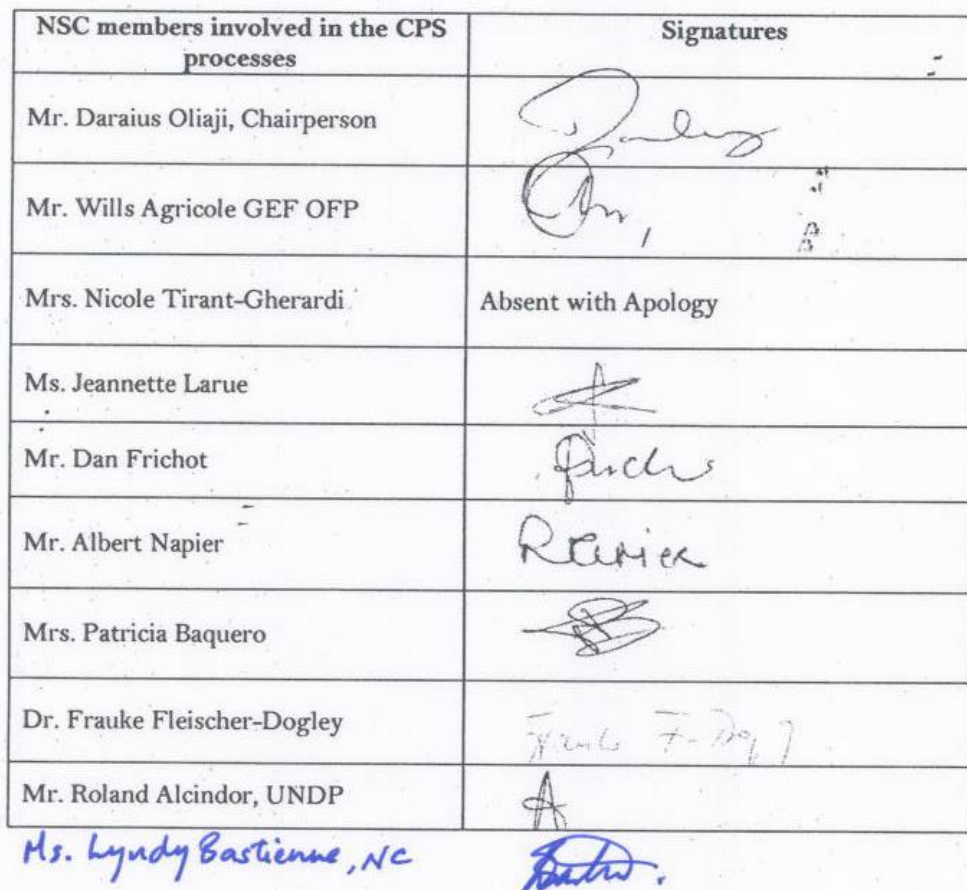 NSC members involved in the CPS
processes
Signatures
Mr. Daraius Oliaji, Chairperson
Mr. Wills Agricole GEF OFP
Mrs. Nicole Tirant-Gherardi
Absent with Apology
Ms. Jeannette Larue
Mr. Dan Frichot
Mr. Albert Napier
Mrs. Patricia Baquero
Dr. Frauke Fleischer-Dogley
Mr. Roland Alcindor, UNDP
Ms. Lyndy Bastienne, NC